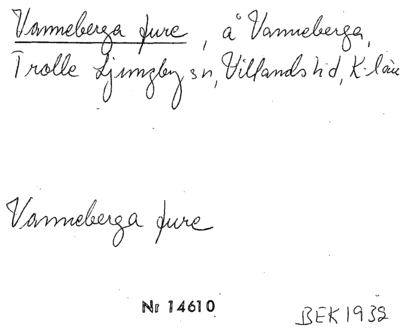 Vanneberga fure, å Vanneberga,
Trolle Ljungby sn, Villands hd, K-län
Vanneberga fure
Nr 14610
BEK 1932